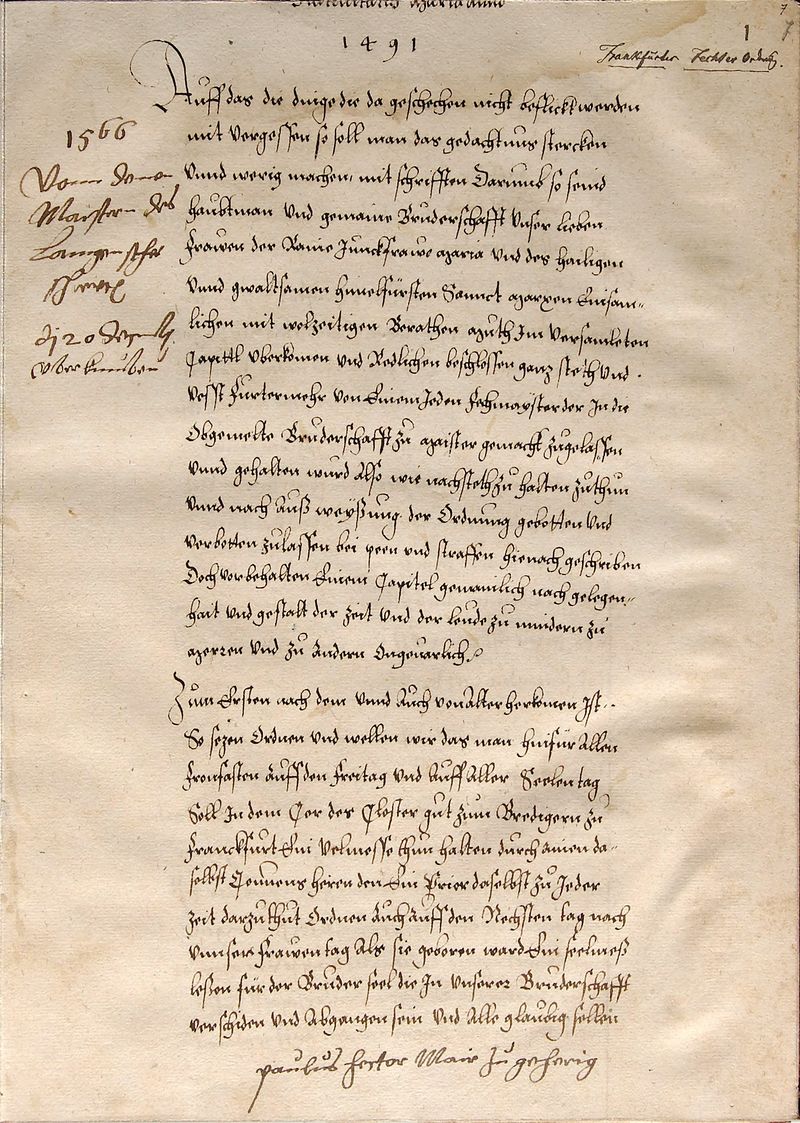 1491
1
7
7
Frankfurter Fechter Ordnung.
Auff das die dinge die da geschechen nicht beflickt werden
mit vergessen so soll man das gedachtnus stercken
vnnd werig machen, mit schrifften Darumb so seind
haubtman vnd gemaine Bruderschafft vnser lieben
frawen der Raine Junckfrawe Maria vnd des hailigen
vnnd gwaltsamen himelfürsten Sannct Marxen Ainsam-
lichen mit wolzeitigen Berathen Muth Im versamleten
Capittl vberkomen vnd Redlichen beschlossen ganz steth vnd
vesst furtermehr von Ainem Jeden Fechmayster der In die
Obgemelte Bruderschafft zu Maister gemacht zugelassen
vnnd gehalten wurd Also wie nachsteth zu halten zuthun
vnnd nach Auß weyßung der Ordnung gebotten vnd
verbotten zulassen bei peen vnd straffen hienach geschriben
Doch vorbehalten Ainem Capitel gemainlich nach gelegen-
hait vnd gestalt der zeit vnd der leude zu mindern zu
Merren vnd zu Andern Ongeuarlich
Zum Ersten nach dem vnnd Auch von Alter herkomen Ist
So sezen Ordnen vnd wellen wir das man hinfür Allen
fronfasten Auff den freitag vnd Auff Aller Seelen tag
Soll In dem Cor des Closter gut zum Bredigern zu
Franckfurt Ain Velmesse thun halten durch ainen da-
selbst Conuens heren den Ain Prier daselbst zu Jeder
zeit darzuthut Ordnen Auch Auff den Nechsten tag nach
vnnser frawen tag Als sie geboren ward Ain seelmeß
leßen für der Bruder seel die In vnserer Bruderschafft
verschiden vnd Abgangen sein vnd Alle glaubig sollen
paulus hector Mair zu geherig
1566
Vonn denen
Maistern des
Langenscher
schwert